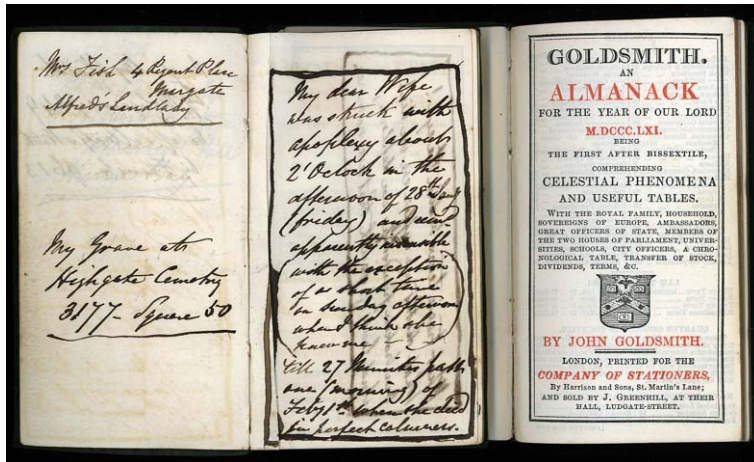 Mrs Fish 4 Regent Place
Margate
Alfred's Landlady
My Grave at
Highgate Cemetry
3177 - Square 50
My dear Wife
was struck with
apoplexy about
2 'Oclock in the
afternoon of 28th Jany
(friday) and
apparently insensible
with the exception
of a short time
on sunday afternoon
when I think she
knew me
till 27 Minutes past
one (morning) of
Feby 1st when she died
in perfect calmness.
GOLDSMITH.
AN
ALMANACK
FOR THE YEAR OF OUR LORD
M.DCCC.LXI.
BEING
THE FIRST AFTER BISSEXTILE,
COMPREHENDING
CELESTIAL PHENOMENA
AND USEFUL TABLES.
WITH THE ROYAL FAMILY, HOUSEHOLD,
SOVEREIGNS OF EUROPE, AMBASSADORS,
GREAT OFFICERS OF STATE, MEMBERS OF
THE TWO HOUSES OF PARLIAMENT, UNIVER-
SITIES, SCHOOLS, CITY OFFICERS, A CHRO-
NOLOGICAL TABLE, TRANSFER OF STOCK,
DIVIDENDS, TERMS, &C.
BY JOHN GOLDSMITH.
LONDON, PRINTED FOR THE
COMPANY OF STATIONERS,
By Harrison and Sons, St. Martin's Lane;
AND SOLD BY J. GREENHILL, AT THEIR
HALL, LUDGATE-STREET.